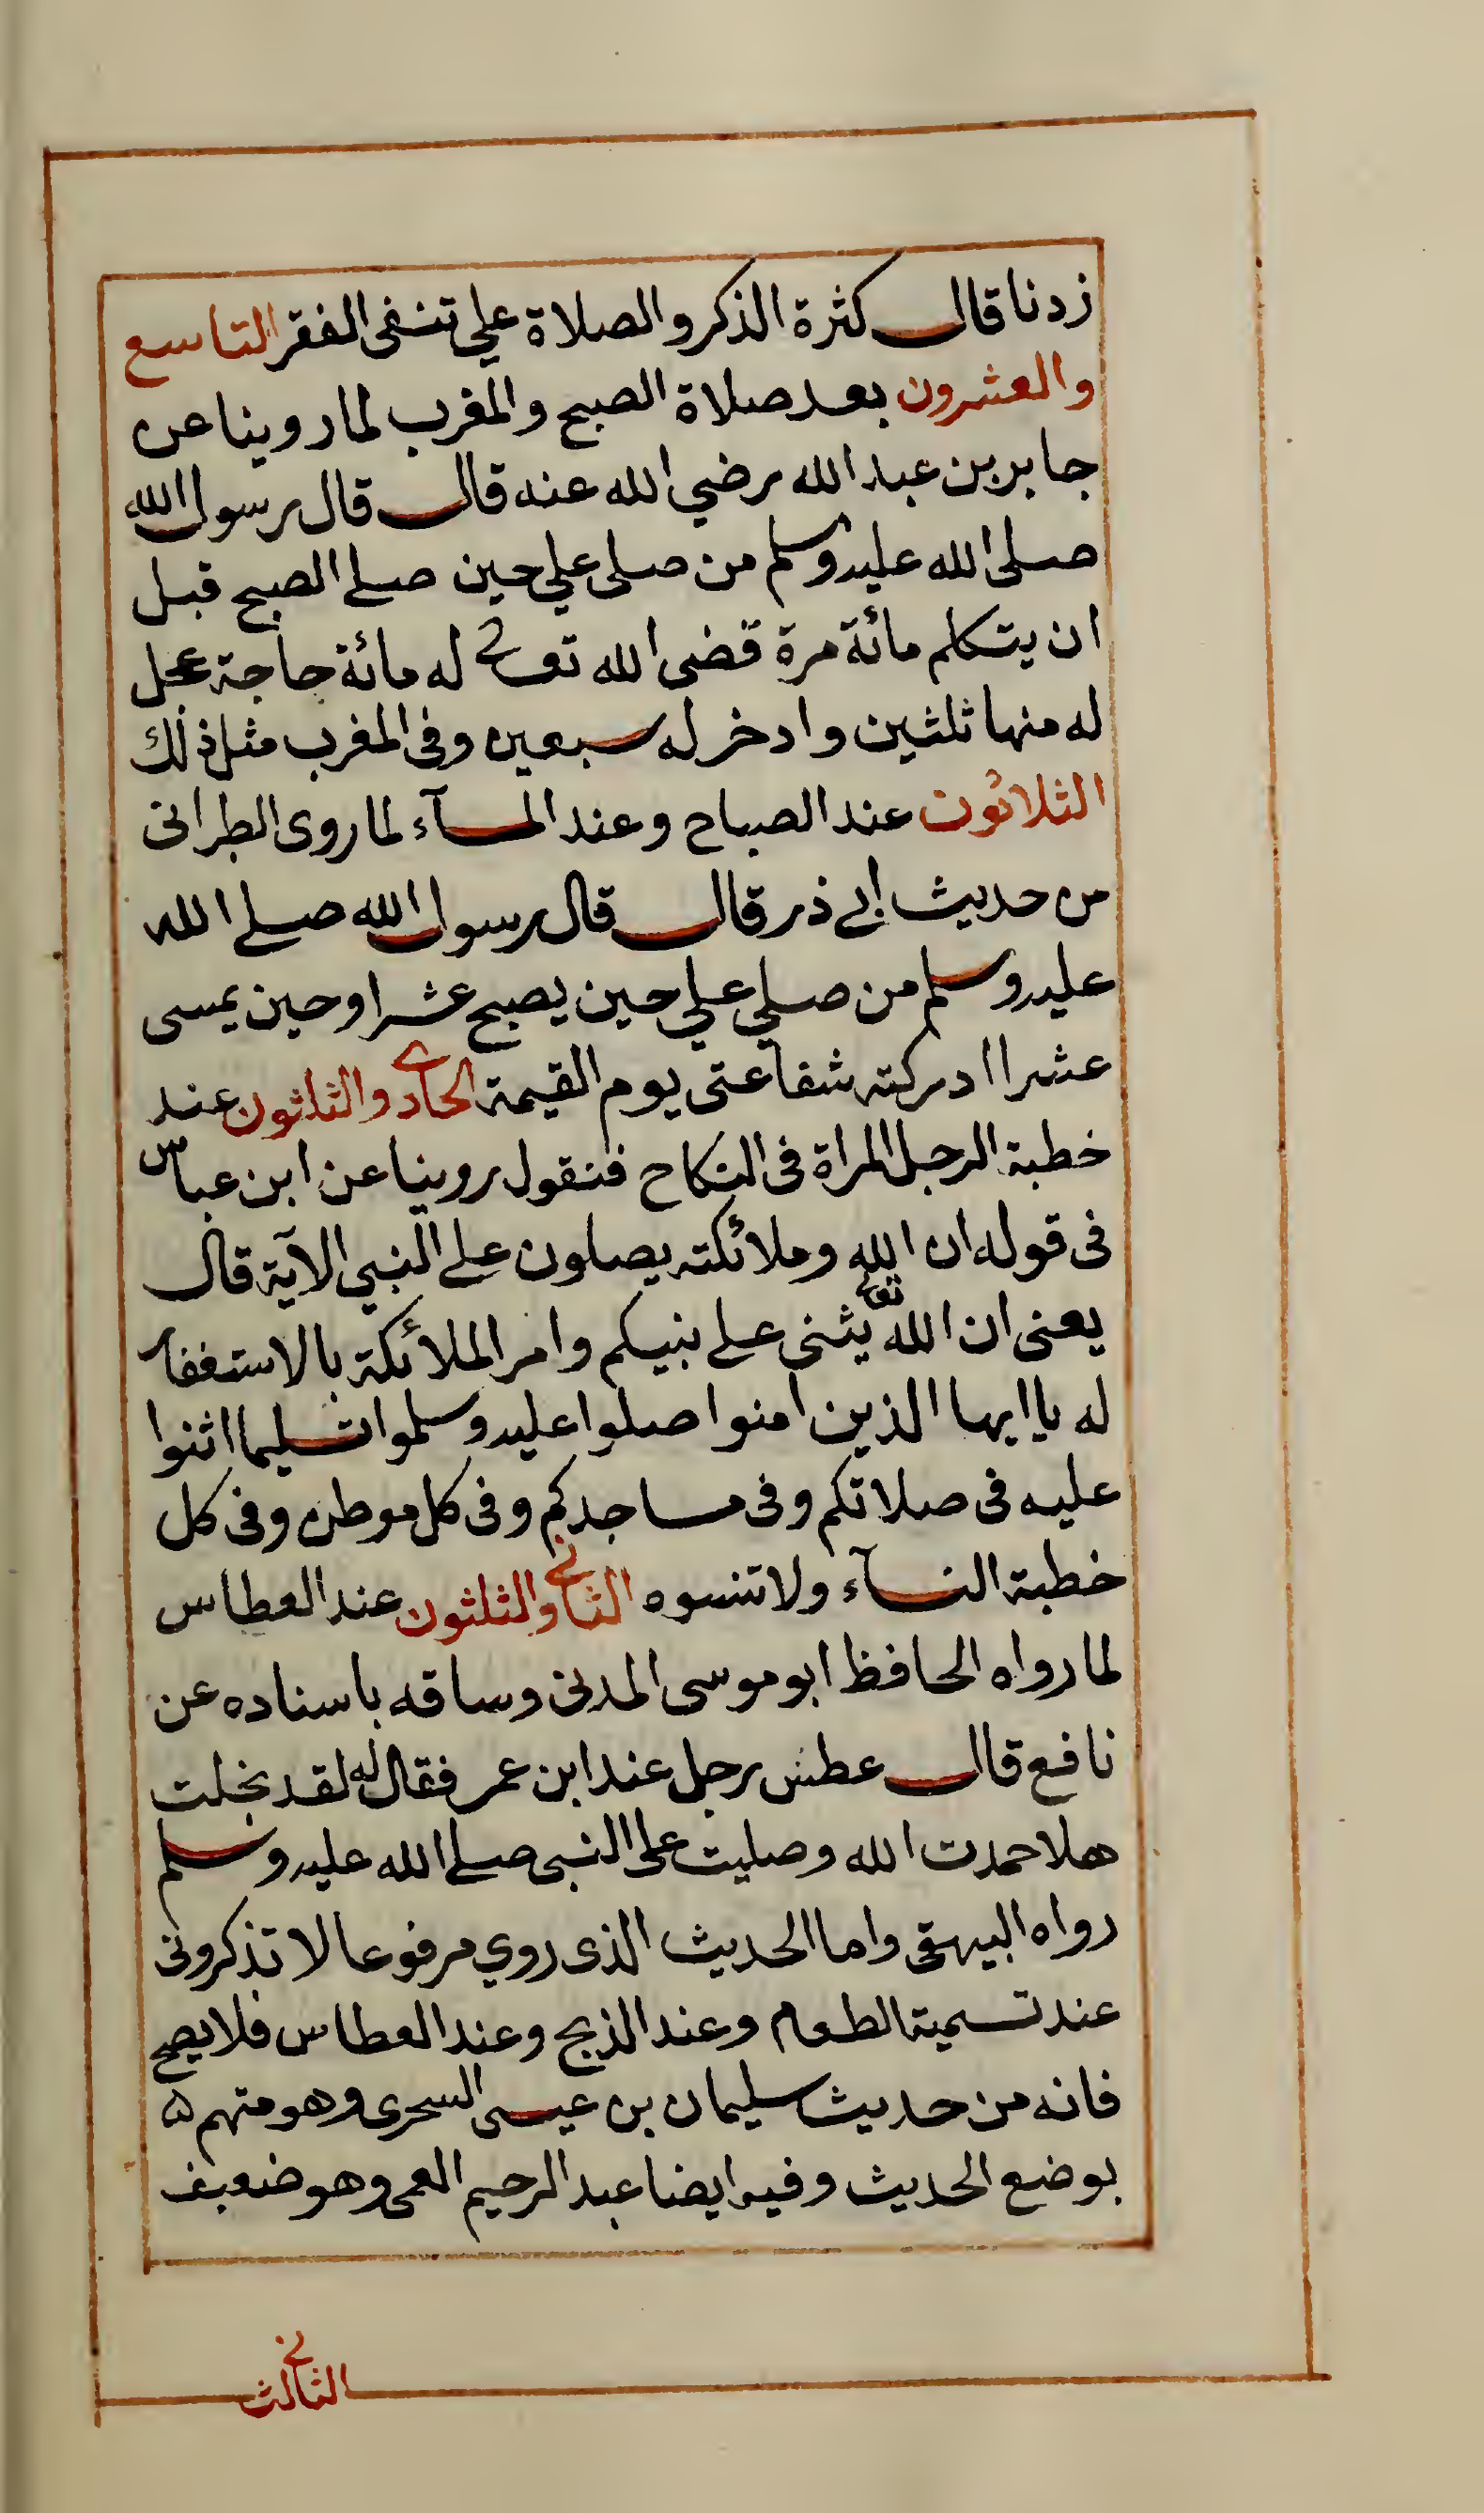 زدنا قال كثرة الذكر والصلاة علي تنفى الفقر التاسع
والعشرون بعد صلاة الصبح والمغرب لما روينا عن
جابر بن عبد الله رضي الله عنه قال قال رسول الله
صلى الله عليه وسلم من صلى علي حين صلے الصبح قبل
ان يتكلم مائة مرة قضى الله تعالى له مائة حاجة عجل
له منها ثلثين وادخر له سبعين وفى المغرب مثل ذلك
الثلاثون عند الصباح وعند المسآء لما روى الطبرانى
من حديث ابى ذر قال قال رسول الله صلے الله
عليه وسلم من صلي علي حين يصبح عشرا وحين يمسى
عشرا ادركته شفاعتى يوم القيمة الحادي والثلثون عند
خطبة الرجل المراة فى النكاح فنقول روينا عن ابن عباس
فى قوله ان الله وملائكته يصلون على النبي الآية قال
يعنى ان الله تعالى يثنى على نبيكم وامر الملائكة بالاستغفار
له يا ايها الذين امنوا صلوا عليه وسلموا تسليما اثنوا
عليه فى صلاتكم وفى مساجدكم وفى كل موطن وفى كل
خطبة النسآء ولا تنسوه الثانى والثلثون عند العطاس
لما رواه الحافظ ابو موسى المدنى وساقه باسناده عن
نافع قال عطس رجل عند ابن عمر فقال له لقد بخلت
هلا حمدت الله وصليت على النبى صلے الله عليه وسلم
رواه البيهقى واما الحديث الذى روي مرفوعا لا تذكرونى
عند تسمية الطعام وعند الذبح وعند العطاس فلا يصح
فانه من حديث سليمان بن عيسى السحرى وهو متهم
بوضع الحديث وفيه ايضا عبد الرحيم العمى وهو ضعيف
الثالث